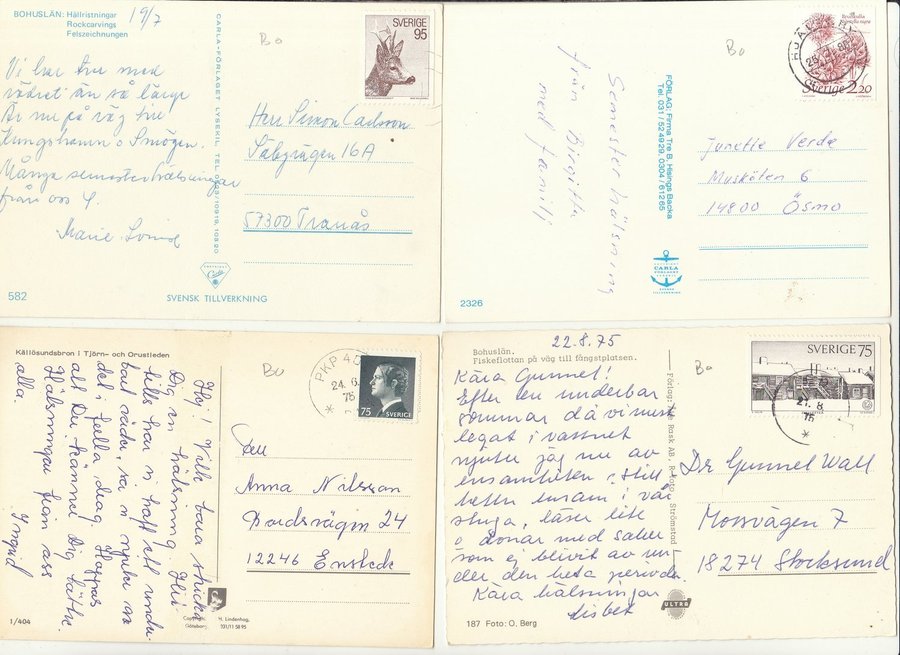 BOHUSLÄN: Hällristningar
Rockcarvings
Felszeichnungen
19/7
Vi har tur med
vädret än så länge
Är nu på väg till
Kungshamn o Smögen.
Många semesterhälsningar
från oss 4.
Marie Louise
582
CARLA-FÖRLAGET LYSEKIL, TEL.
Carla
SVENSK TILLVERKNING
Bo
SVERIGE
95
Herr Simon Carlsson
Sabyvägen 16A
57300 Tranås
Semesterhälsning
från Birgitta
med familj
2326
FÖRLAG: Firma Tre B, Hisings Backa
Tel. 031/52 49 29, 0304/612 65
CARLA
FÖRLAGET
SVENSK
TILLVERKNING
Bo
Sverige 2.20
Junette Verde
Muskøten 6
14800 Ösmo
Källösundsbron i Tjörn- och Orustleden
Hej! Vill bara skicka
Dig en hälsning. Här
nere har vi haft ett under-
bart väder, så vi njuter av
det i fulla drag. Hoppas
att Du känner Dig bättre.
Hälsningar från oss
alla. Ingrid
1/404
H. Lindenhag,
Göteborg.
Bo
PKP 40
24.6.
76
75 SVERIGE
Anna Nilsson
Bordsvägen 24
12246 Enskede
22.8.75
Bohuslän.
Fiskeflottan på väg till fångstplatsen.
Kära Gunnel!
Efter en underbar
sommar då vi mest
legat i vattnet
njuter jag nu av
ensamheten. Sitter
helt ensam i vår
stuga, läser lite
o donar med saker
som ej blivit av un-
der den heta perioden.
Kära hälsningar
Lisbet
Förlag: Axel Rask AB, R-foto, Strömstad
ULTRA
187 Foto: O. Berg
Bo
SVERIGE 75
21.8
75
Dr Gunnel Wall
Morsvägen 7
18274 Stocksund